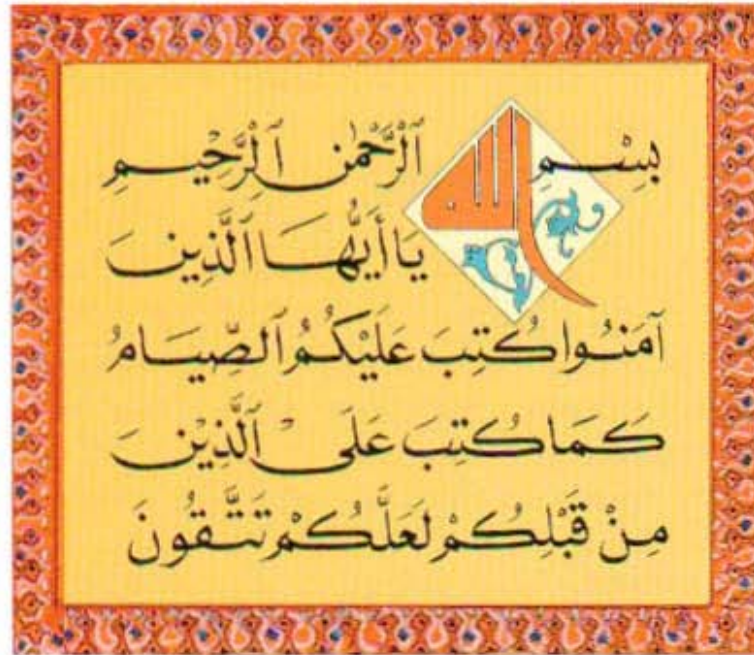 بِسْمِ اللّٰه ٱلرَّحْمٰنِ ٱلرَّحِيمِ
يَا أَيُّهَا ٱلَّذِينَ
آمَنُوا كُتِبَ عَلَيْكُمُ ٱلصِّيَامُ
كَمَا كُتِبَ عَلَى ٱلَّذِيْنَ
مِنْ قَبْلِكُمْ لَعَلَّكُمْ تَتَّقُونَ